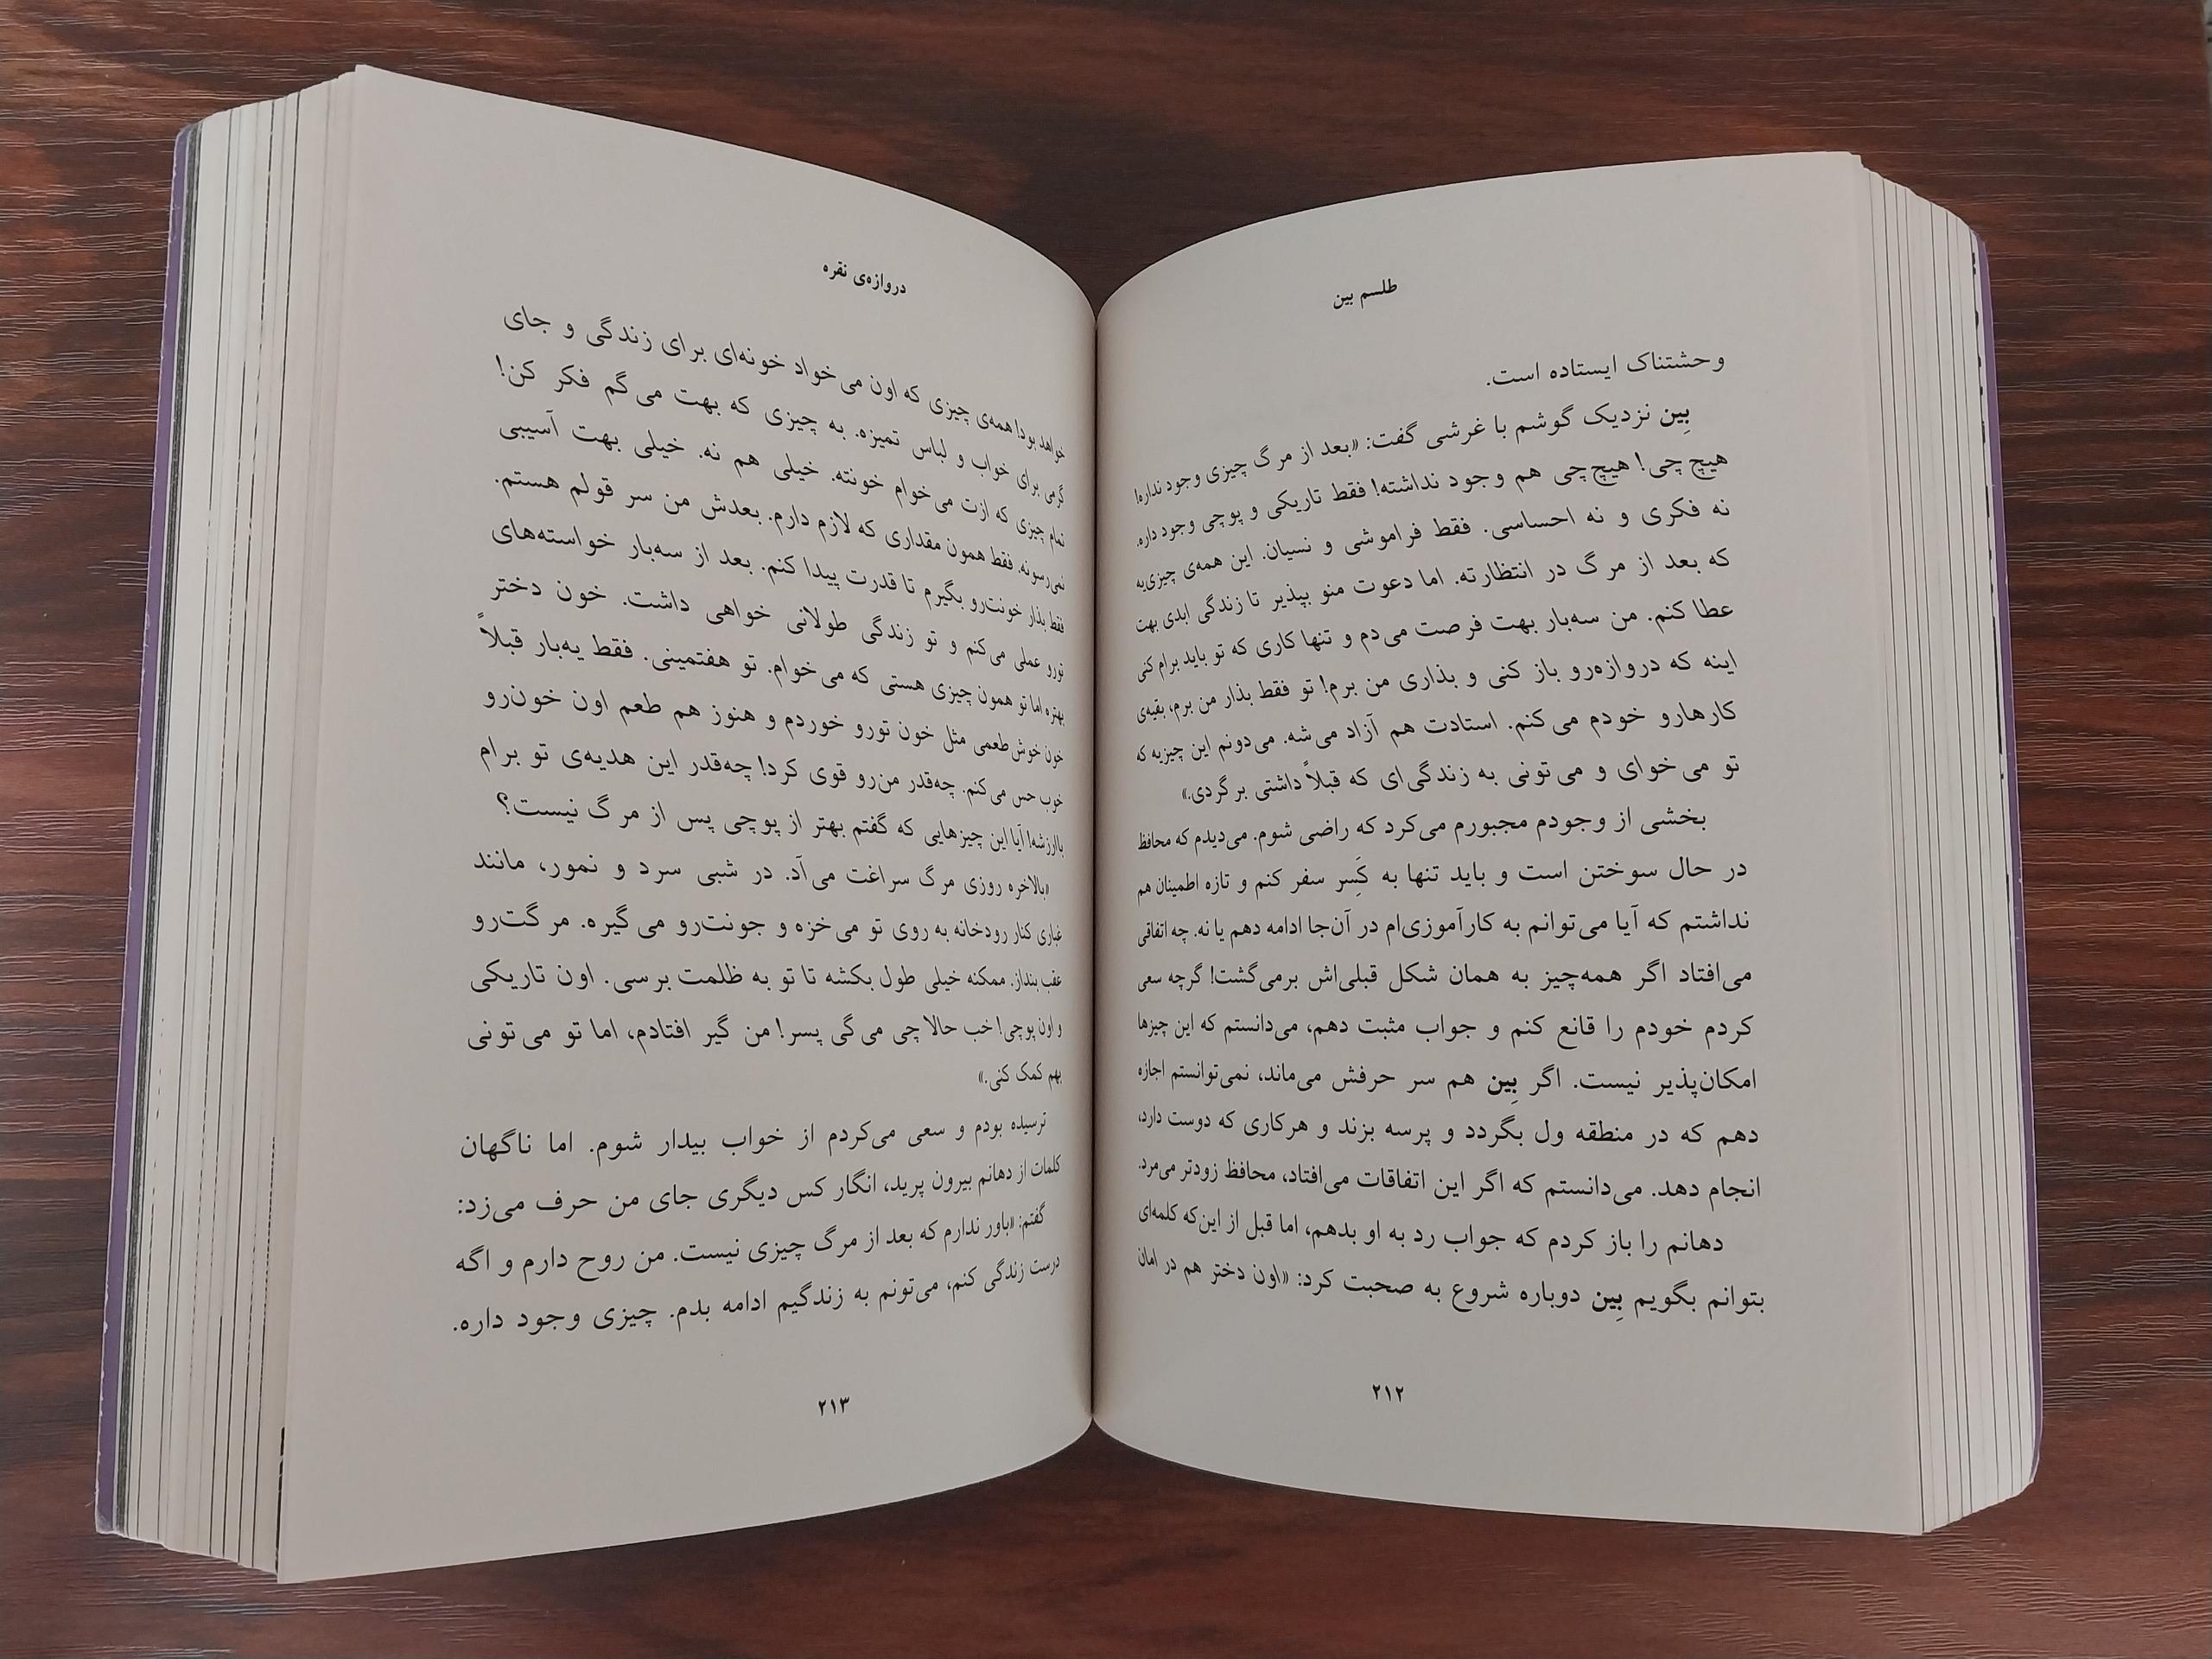 طلسم بین
وحشتناک ایستاده است.
بِین نزدیک گوشم با غرشی گفت: «بعد از مرگ چیزی وجود نداره!
هیچ‌چی! هیچ‌چی هم وجود نداشته! فقط تاریکی و پوچی وجود داره.
نه فکری و نه احساسی. فقط فراموشی و نسیان. این همه‌ی چیزی‌یه
که بعد از مرگ در انتظارته. اما دعوت منو بپذیر تا زندگی ابدی بهت
عطا کنم. من سه‌بار بهت فرصت می‌دم و تنها کاری که تو باید برام کنی
اینه که دروازه‌رو باز کنی و بذاری من برم! تو فقط بذار من برم، بقیه‌ی
کارهارو خودم می‌کنم. استادت هم آزاد می‌شه. می‌دونم این چیزیه که
تو می‌خوای و می‌تونی به زندگی‌ای که قبلاً داشتی برگردی.»
بخشی از وجودم مجبورم می‌کرد که راضی شوم. می‌دیدم که محافظ
در حال سوختن است و باید تنها به کَسِر سفر کنم و تازه اطمینان هم
نداشتم که آیا می‌توانم به کارآموزی‌ام در آن‌جا ادامه دهم یا نه. چه اتفاقی
می‌افتاد اگر همه‌چیز به همان شکل قبلی‌اش برمی‌گشت! گرچه سعی
کردم خودم را قانع کنم و جواب مثبت دهم، می‌دانستم که این چیزها
امکان‌پذیر نیست. اگر بِین هم سر حرفش می‌ماند، نمی‌توانستم اجازه
دهم که در منطقه ول بگردد و پرسه بزند و هرکاری که دوست دارد،
انجام دهد. می‌دانستم که اگر این اتفاقات می‌افتاد، محافظ زودتر می‌مرد.
دهانم را باز کردم که جواب رد به او بدهم، اما قبل از این‌که کلمه‌ای
بتوانم بگویم بِین دوباره شروع به صحبت کرد: «اون دختر هم در امان
۲۱۲
دروازه‌ی نقره
خواهد بود! همه‌ی چیزی که اون می‌خواد خونه‌ای برای زندگی و جای
گرمی برای خواب و لباس تمیزه. به چیزی که بهت می‌گم فکر کن!
تمام چیزی که ازت می‌خوام خونته. خیلی هم نه. خیلی بهت آسیبی
نمی‌رسونه. فقط همون مقداری که لازم دارم. بعدش من سر قولم هستم.
فقط بذار خونت‌رو بگیرم تا قدرت پیدا کنم. بعد از سه‌بار خواسته‌های
تورو عملی می‌کنم و تو زندگی طولانی خواهی داشت. خون دختر
بهتره اما تو همون چیزی هستی که می‌خوام. تو هفتمینی. فقط یه‌بار قبلاً
خون خوش‌طعمی مثل خون تورو خوردم و هنوز هم طعم اون خون‌رو
خوب حس می‌کنم. چه‌قدر من‌رو قوی کرد! چه‌قدر این هدیه‌ی تو برام
باارزشه! آیا این چیزهایی که گفتم بهتر از پوچی پس از مرگ نیست؟
«بالاخره روزی مرگ سراغت می‌آد. در شبی سرد و نمور، مانند
غباری کنار رودخانه به روی تو می‌خزه و جونت‌رو می‌گیره. مرگت‌رو
عقب بنداز. ممکنه خیلی طول بکشه تا تو به ظلمت برسی. اون تاریکی
و اون پوچی! خب حالا چی می‌گی پسر! من گیر افتادم، اما تو می‌تونی
بهم کمک کنی.»
ترسیده بودم و سعی می‌کردم از خواب بیدار شوم. اما ناگهان
کلمات از دهانم بیرون پرید، انگار کس دیگری جای من حرف می‌زد:
گفتم: «باور ندارم که بعد از مرگ چیزی نیست. من روح دارم و اگه
درست زندگی کنم، می‌تونم به زندگیم ادامه بدم. چیزی وجود داره.
۲۱۳